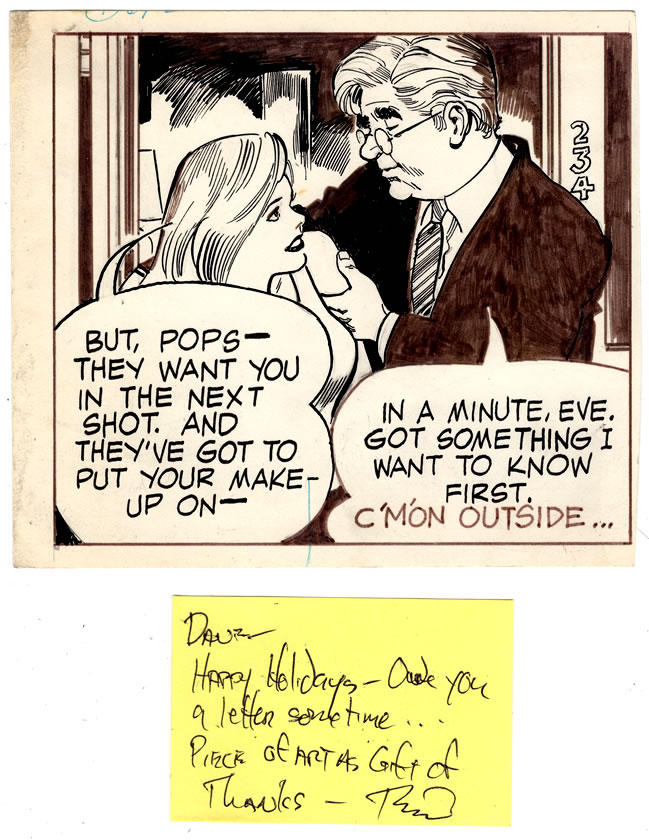 BUT, POPS—
THEY WANT YOU
IN THE NEXT
SHOT. AND
THEY'VE GOT TO
PUT YOUR MAKE-
UP ON—
IN A MINUTE, EVE.
GOT SOMETHING I
WANT TO KNOW
FIRST.
C'MON OUTSIDE...
234
Dave—
Happy Holidays— Owe you
a letter sometime...
Piece of art as Gift of
Thanks —